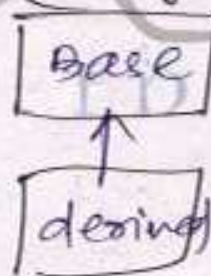 Base
derived